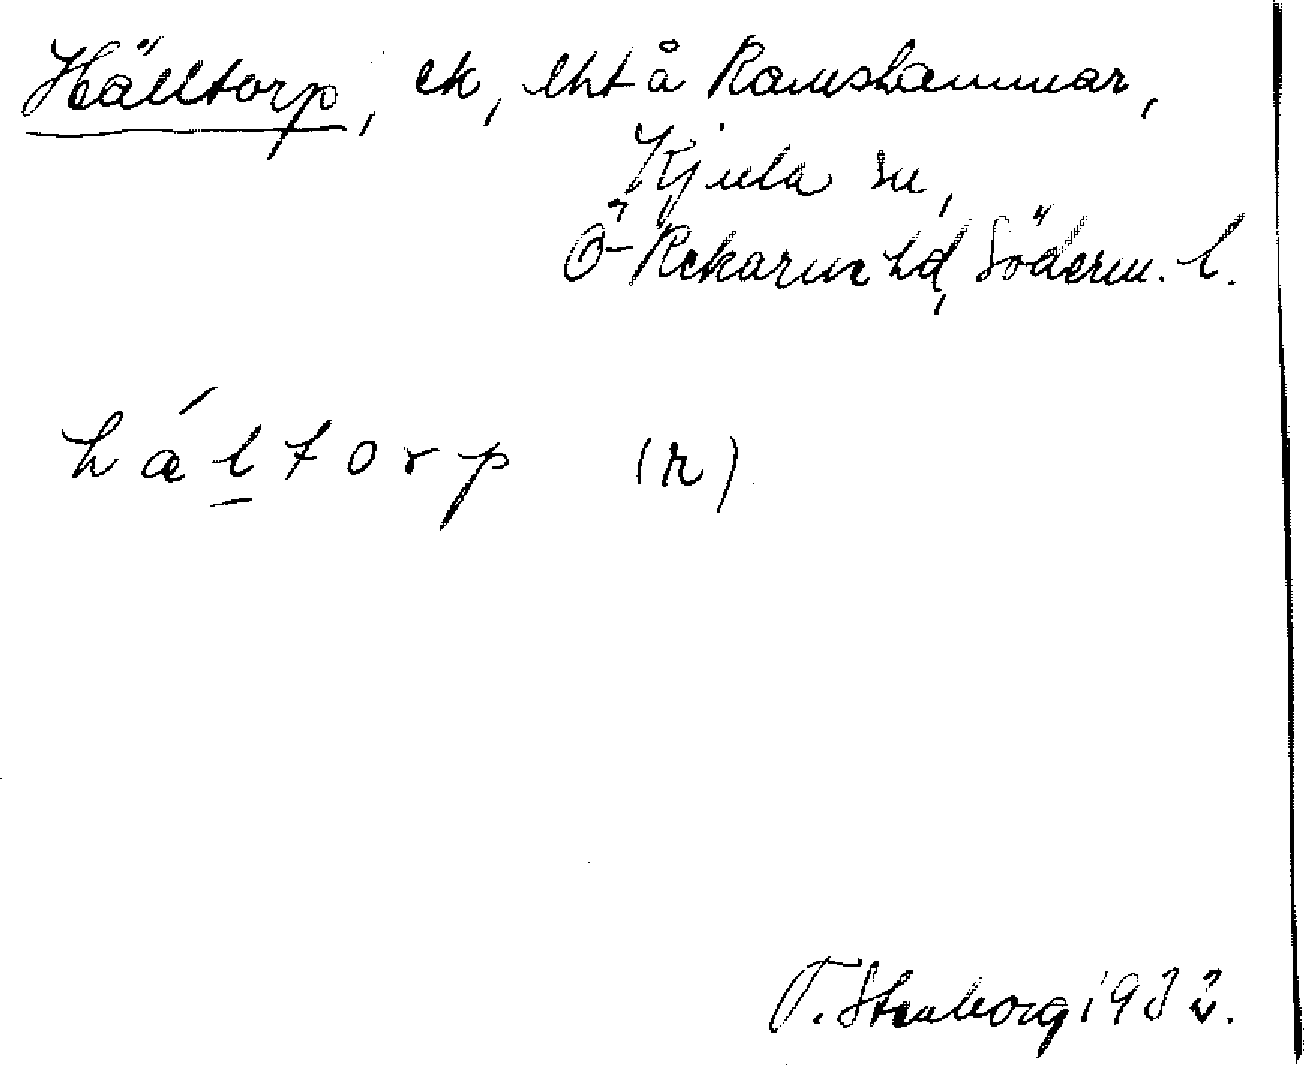 Hälltorp, ek, lht å Ramshammar,
Kjula sn,
Ö-Rekarne hd, Söderm. l.
há̱ltorp (n)
T. Stenborg 1932.